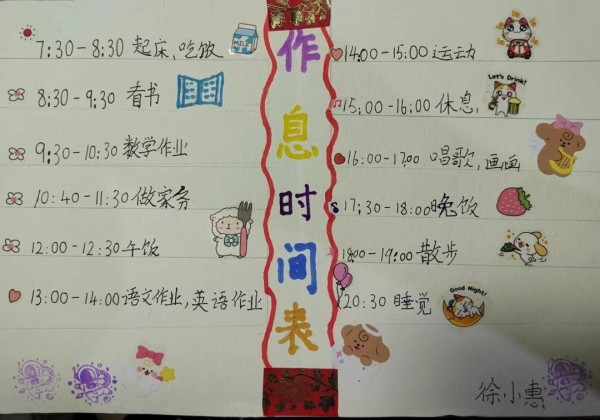 7:30-8:30 起床、吃饭
8:30-9:30 看书
9:30-10:30 数学作业
10:40-11:30 做家务
12:00-12:30 午饭
13:00-14:00 语文作业,英语作业
作息时间表
14:00-15:00 运动
Let's Drink!
15:00-16:00 休息
16:00-17:00 唱歌,画画
17:30-18:00 晚饭
18:00-19:00 散步
20:30 睡觉
Good Night!
徐小惠